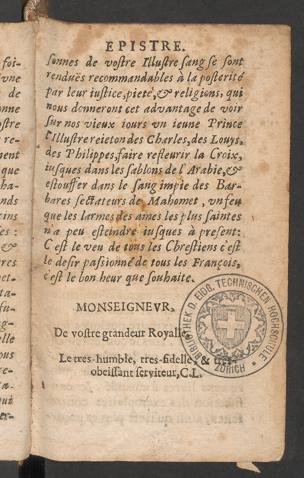 EPISTRE.
sonnes de vostre Illustre sang se sont
renduës recommandables à la posterité
par leur iustice, pieté, & religions, qui
nous donneront cet advantage de voir
sur nos vieux iours vn ieune Prince
l'Illustre reieton des Charles, des Louys,
des Philippes, faire refleurir la Croix,
iusques dans les sablons de l'Arabie, &
estouffer dans le sang impie des Bar-
bares sectateurs de Mahomet, vn feu
que les larmes des ames les plus saintes
n'a peu esteindre iusques à present:
C'est le veu de tous les Chrestiens c'est
le desir passionné de tous les François,
c'est le bon heur que souhaite.
MONSEIGNEVR,
De vostre grandeur Royalle
Le tres-humble, tres-fidelle, & tres-
obeissant serviteur, C.L.
BIBLIOTHEK D. EIDG. TECHNISCHEN HOCHSCHULE
ZÜRICH